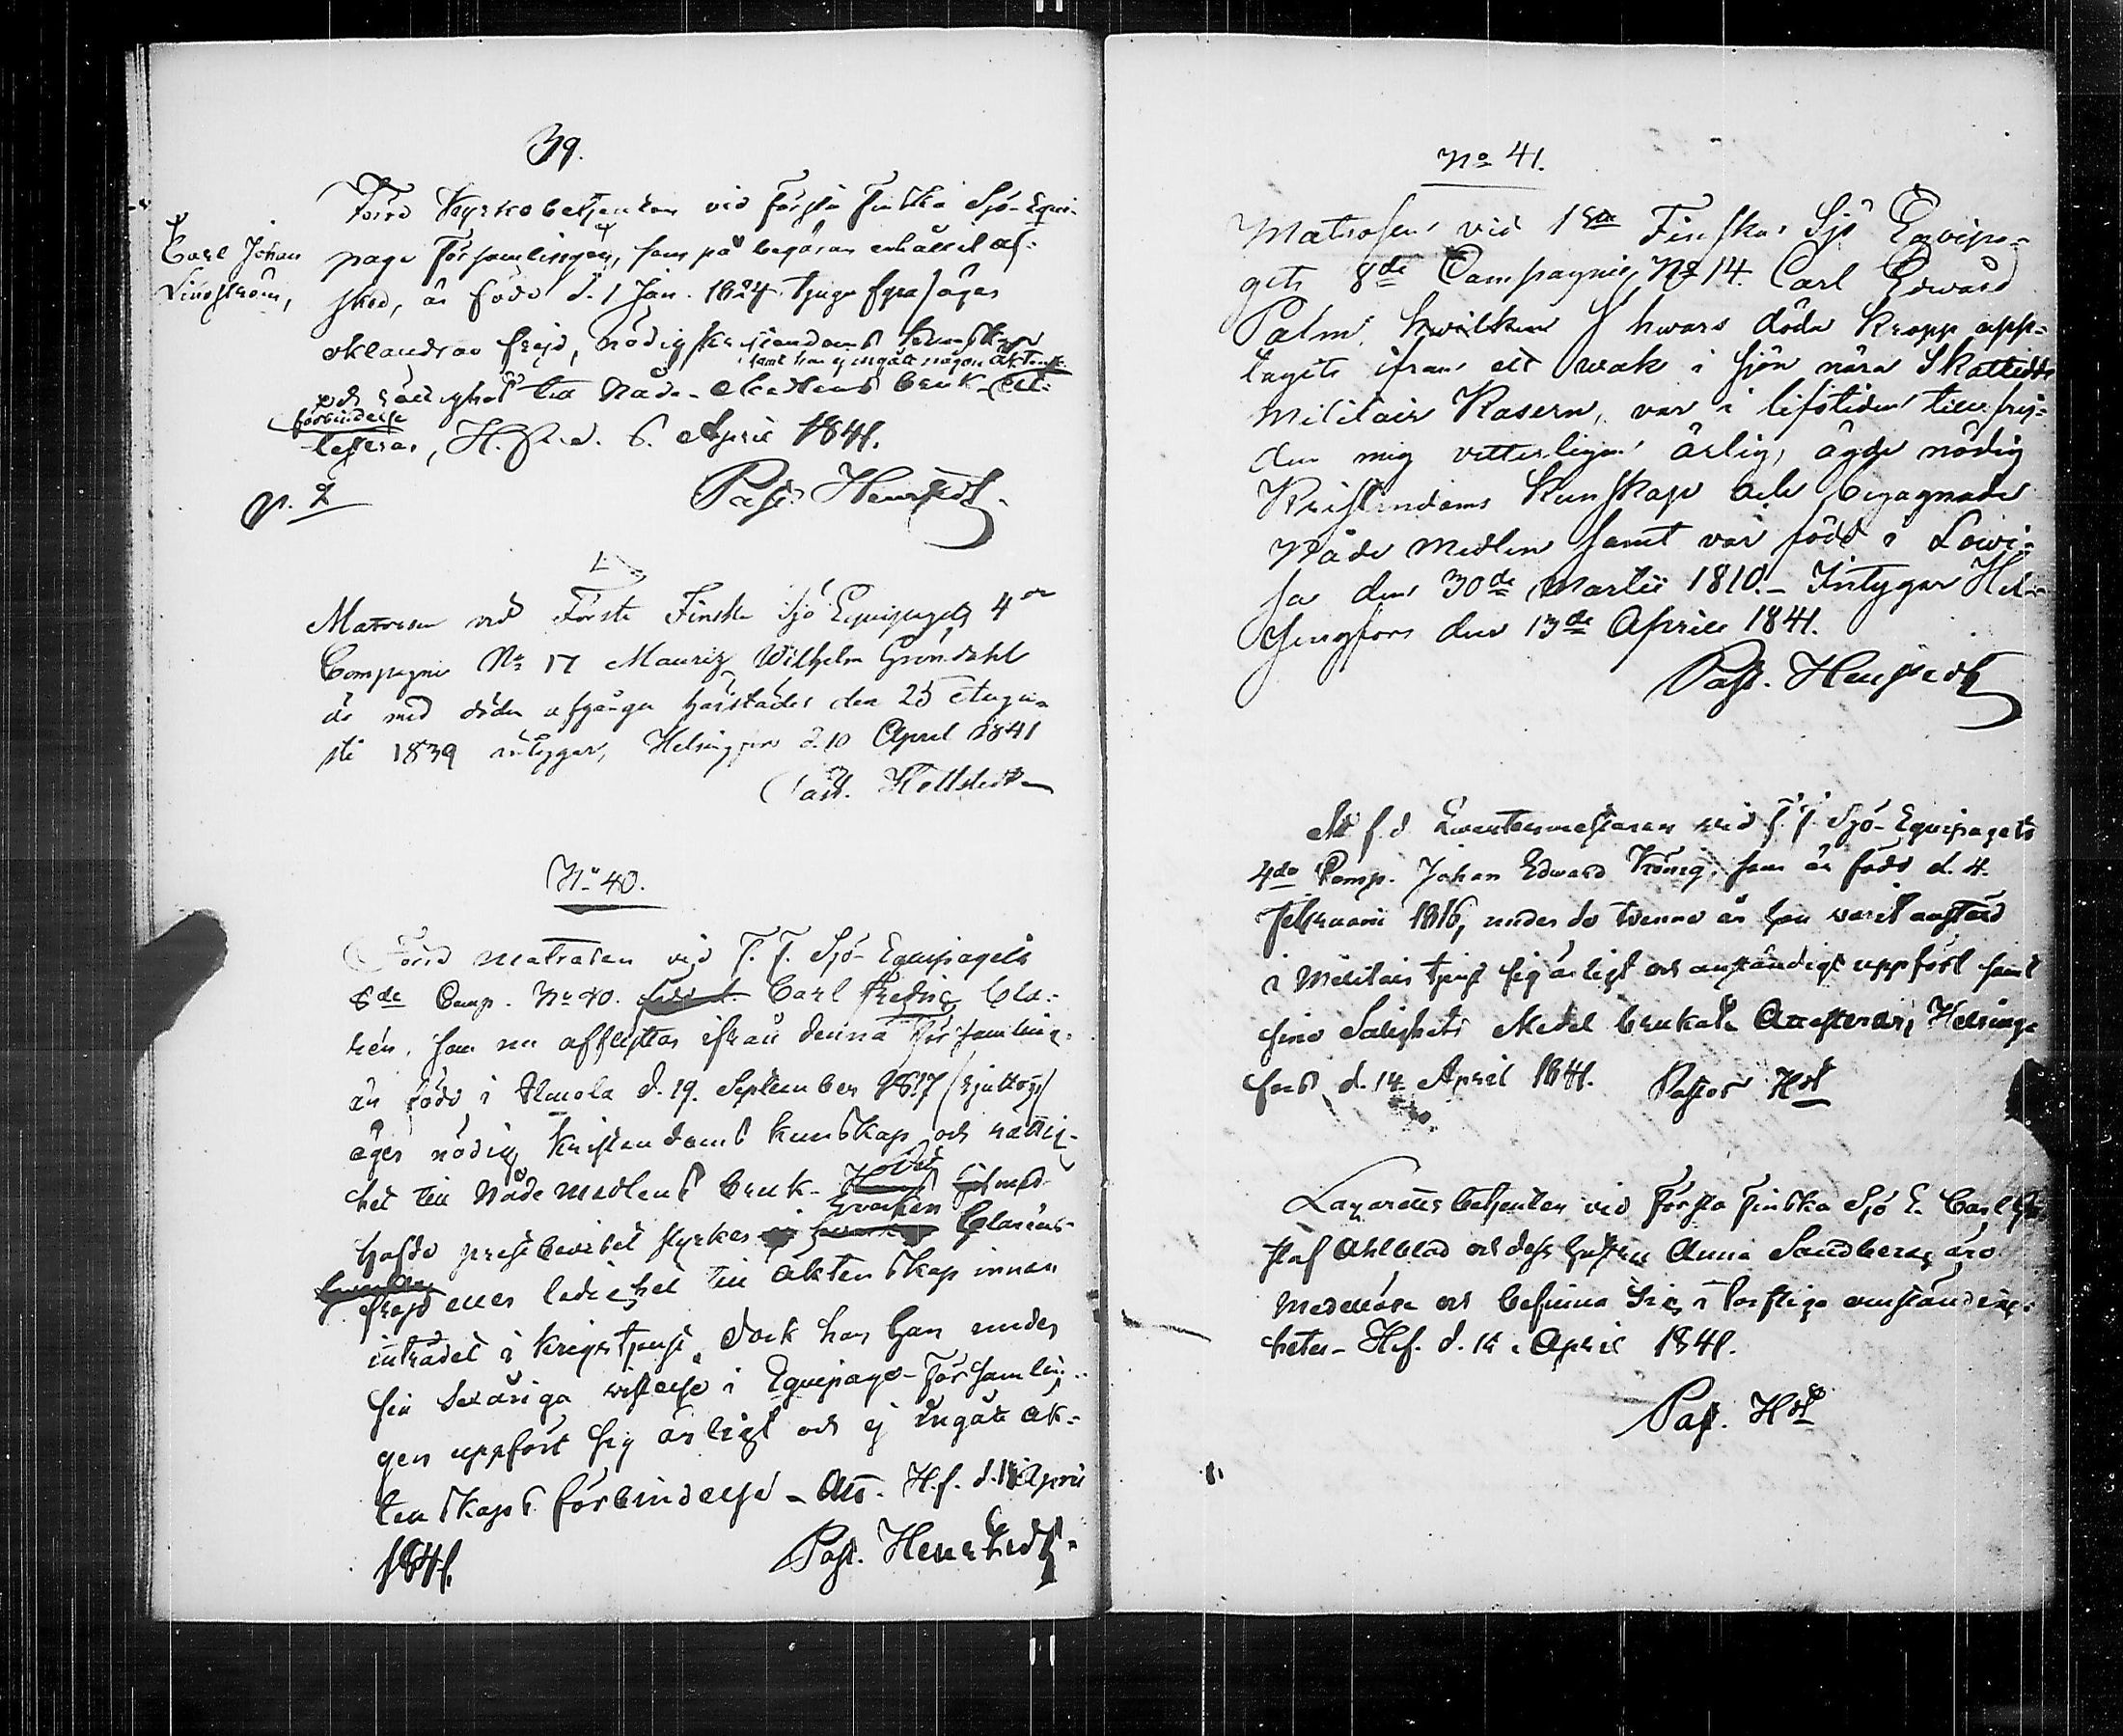 39.
Förre Kyrkobetjenten vid Första Finska Sjö-Equi-
Carl Johan
Lindström,
page Församlingen, som på begäran erhållit af-
sked, är född d. 1 Jan. 1824 tjugu fyra) äger
oklandrad frejd, nödig kristendoms kunskap
samt har ej ingått någon äktensk.
förbindelse
och rättighet till Nåde-Medlens bruk - At-
testeras, H.fors d. 6. April 1841.
Past. Hellstedt
Matrosen vid Första Finska Sjö Equipagets 4de
Compagnie No 17 Mauritz Wilhelm Gröndahl
är med döden afgången härstädes den 25 Augu-
sti 1839 intygar, Helsingfors d. 10 April 1841
Past. Hellstedt
No 40.
Förre Matrosen vid F. F. Sjö-Equipagets
6de Comp. No 40. Carl Fredric Cla-
rén, som nu afflyttar ifrån denna Församling,
är född i Ilmola d. 19. September 1817 (sjutton)
äger nödig Kristendoms kunskap och rättig-
het till Nåde Medlens bruk - Det med-
hafde prestbeviset styrker hvarken Claréns
frejd eller ledighet till äktenskap innan
inträdet i Krigstjenst, dock har han under
sin sexåriga vistelse i Equipage-Församlin-
gen uppfört sig ärligt och ej ingått äk-
tenskaps förbindelse - Att. H.f. d. 12 April
1841.
Past. Hellstedt
No 41.
Matrosen vid 1sta Finska Sjö Eqvipa-
gets 8de Compagnie, No 14. Carl Edward
Palm, hvilken hvars döda kropp upp-
tagits ifrån ett vak i sjön nära Skatudds
Militair Kasern, var i lifstiden till frej-
den mig vetterligen ärlig, ägde nödig
Kristendoms Kunskap och begagnade
Nåde Medlen samt var född i Lowi-
sa den 30de Martii 1810. - Intygar Hel-
singfors den 13de April 1841.
Past. Hellstedt
Att f.d. Qvartermästaren vid F. F. Sjö-Equipagets
4de Comp. Johan Edward König, som är född d. 4.
Februarii 1816, under de tvenne år han varit anställd
i Militair tjenst sig ärligt och anständigt uppfört samt
sine Salighets Medel brukat Attesteras, Helsing-
fors d. 14 April 1841. Pastor Hdt
Lazarettsbetjenten vid Första Finska Sjö E. Carl Gu-
staf Ahlblad och dess hustru Anna Sandberg äro
Medellösa och befinna sig i torftiga omständig-
heter - H.f. d. 14 April 1841.
Past. Hdt